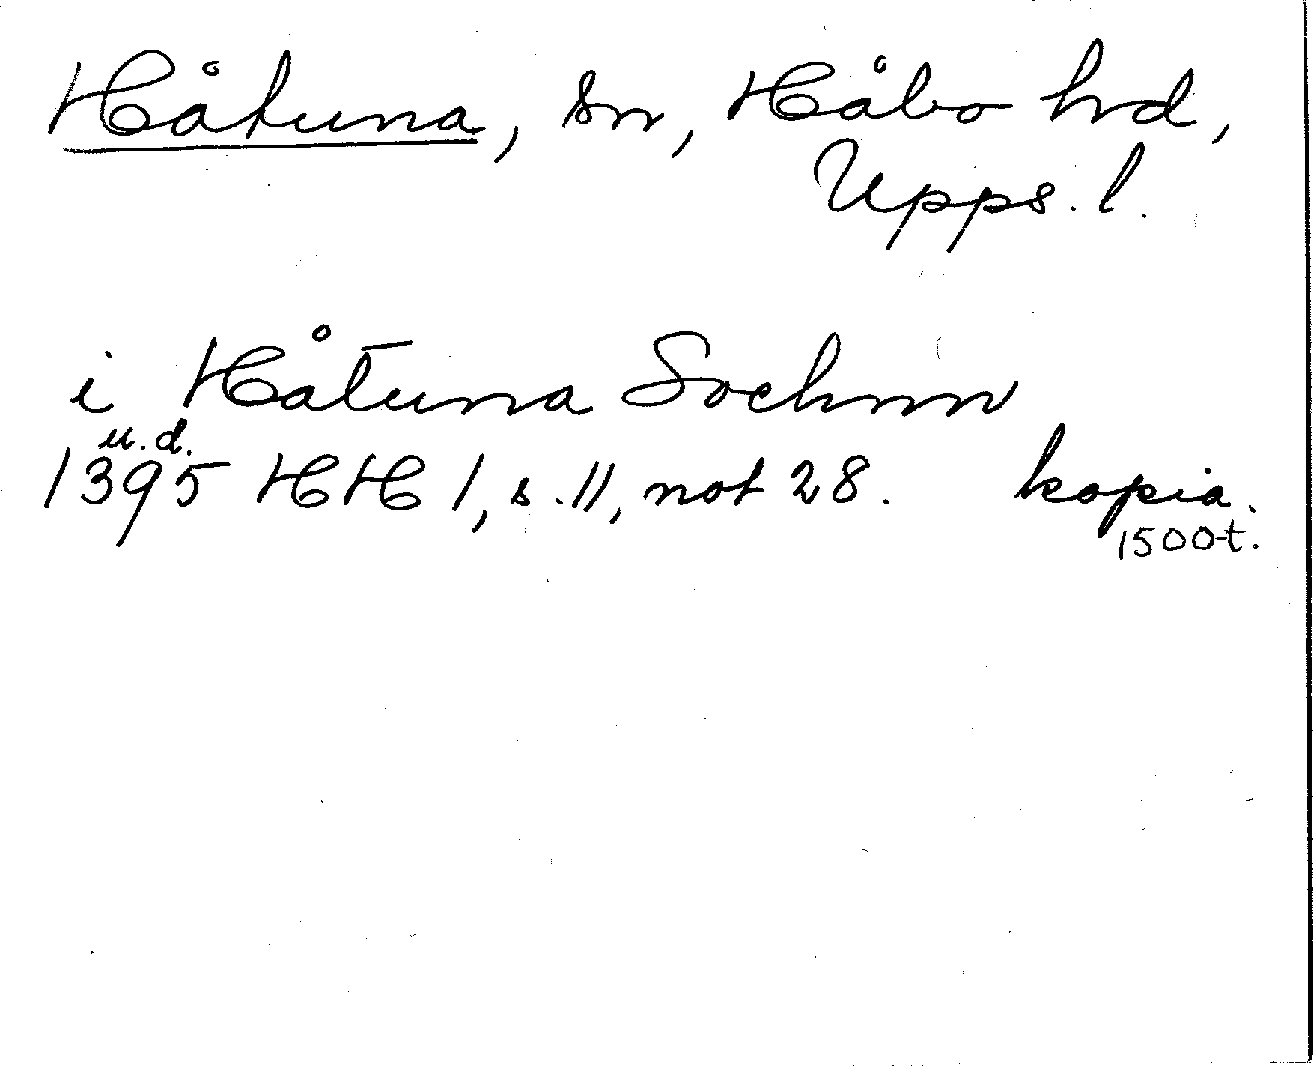 Håtuna, sn, Håbo hrd,
Upps. l.
i Håtuna Sochnn
u.d.
1395 HH 1, s. 11, not 28. kopia.
1500-t.